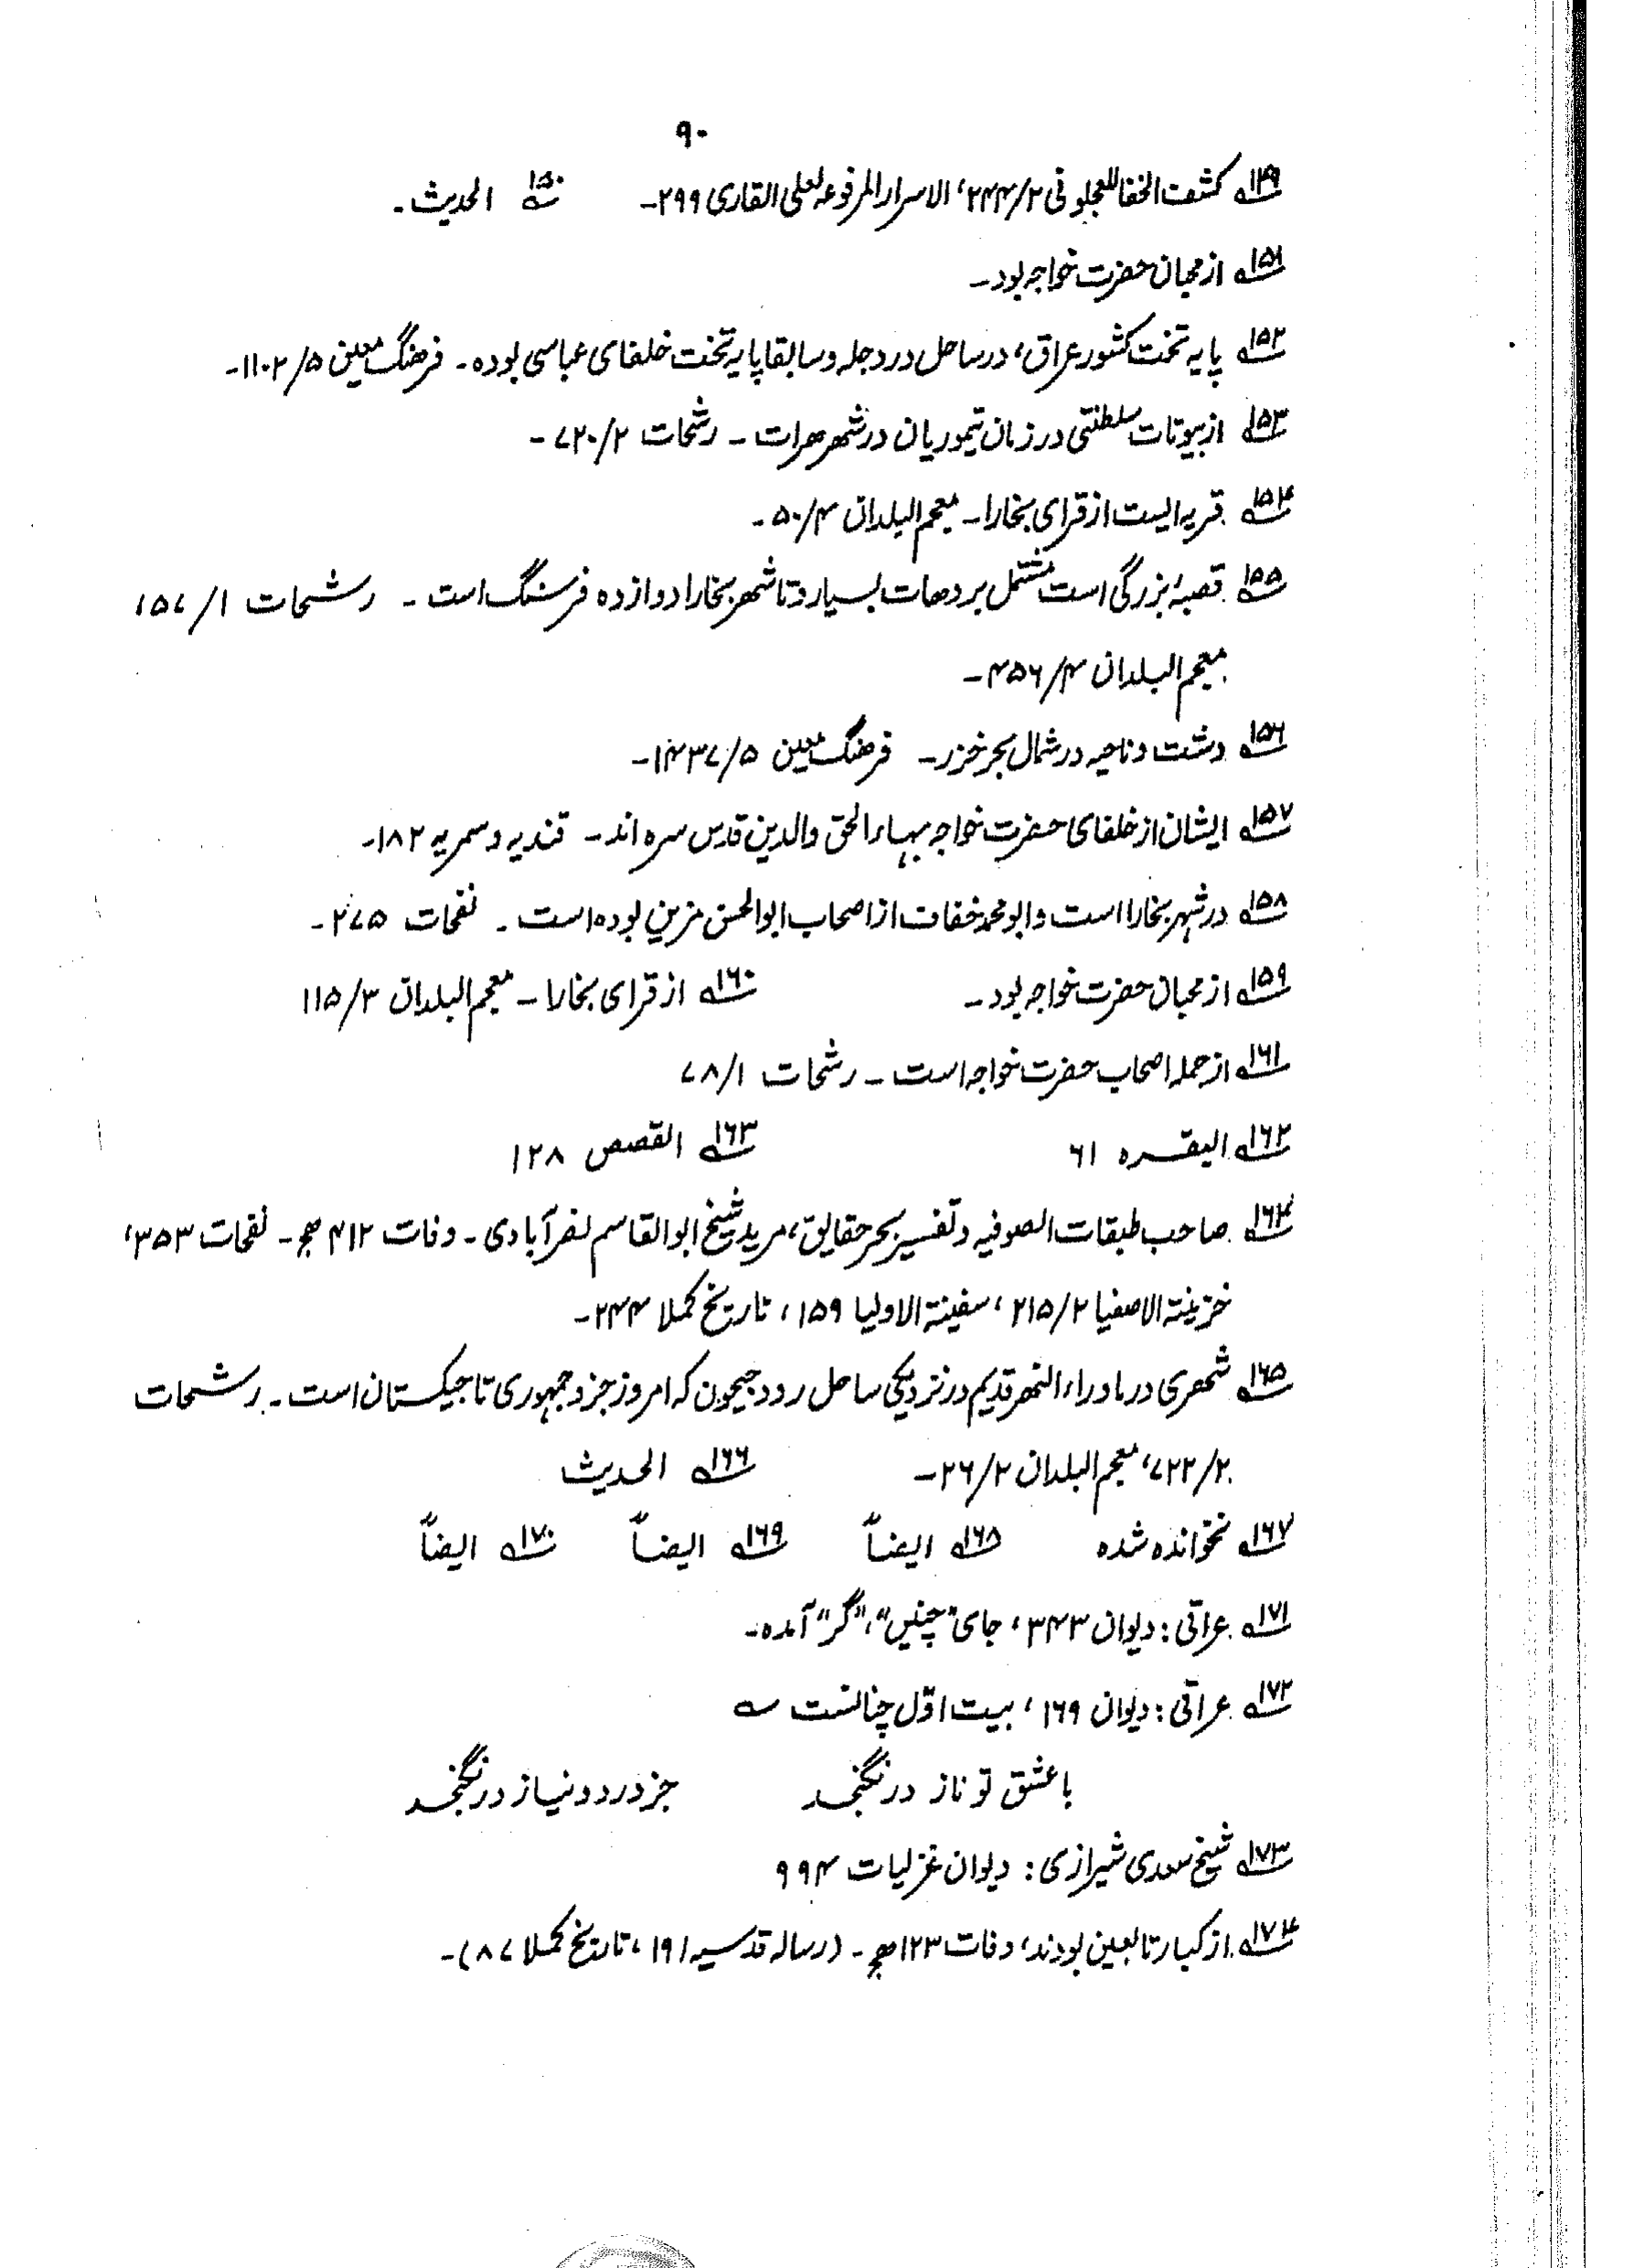 ۹۰
۱۴۹ کشف الخفا للعجلونی ۲/۲۴۴، الاسرار المرفوعہ لعلی القاری ۲۹۹- ۱۵۰ الحدیث۔
۱۵۱ از محبان حضرت خواجہ بود۔
۱۵۲ پایہ تخت کشور عراق، در ساحل درد جلہ و سابقا پایہ تخت خلفای عباسی بودہ۔ فرھنگ معین ۵/۱۱۰۲-
۱۵۳ از بیوتات سلطنتی در زمان تیموریان در شھر ھرات ۔ رشحات ۲/۷۲۰ -
۱۵۴ قریہ ایست از قرای بخارا۔ معجم البلدان ۴/۵۰ -
۱۵۵ قصبۂ بزرگی است مشتمل بر دھات بسیار و تا شھر بخارا دوازدہ فرسنگ است ۔ رشحات ۱/۱۵۷،
معجم البلدان ۴/۴۵۶ -
۱۵۶ دشت و ناحیہ در شمال بحر خزر۔ فرھنگ معین ۵/۱۴۳۷-
۱۵۷ ایشان از خلفای حضرت خواجہ بہاء الحق والدین قدس سرہ اند۔ قندیہ و سمریہ ۱۸۲-
۱۵۸ در شہر بخارا است و ابو محمد خفاف از اصحاب ابو الحسن مزین بودہ است ۔ نفحات ۲۷۵ -
۱۵۹ از محبان حضرت خواجہ بود۔ ۱۶۰ از قرای بخارا۔ معجم البلدان ۳/۱۱۵
۱۶۱ از جملہ اصحاب حضرت خواجہ است ۔ رشحات ۱/۷۸
۱۶۲ البقرہ ۶۱ ۱۶۳ القصص ۱۲۸
۱۶۴ صاحب طبقات الصوفیہ و تفسیر بحر حقایق، مرید شیخ ابو القاسم نصر آبادی ۔ وفات ۴۱۲ ھج ۔ نفحات ۳۵۳،
خزینۃ الاصفیا ۲/۲۱۵، سفینۃ الاولیا ۱۵۹، تاریخ کملا ۲۴۴ -
۱۶۵ شھری در ماوراء النھر قدیم در نزدیکی ساحل رود جیحون کہ امروز جزو جمہوری تاجیکستان است ۔ رشحات
۲/۷۲۲، معجم البلدان ۲/۲۶- ۱۶۶ الحدیث
۱۶۷ نخواندہ شدہ ۱۶۸ ایضاً ۱۶۹ ایضاً ۱۷۰ ایضاً
۱۷۱ عراقی: دیوان ۳۴۳، جای "چنیں"، "گر" آمدہ۔
۱۷۲ عراقی: دیوان ۱۶۹، بیت اوّل چنانست ؎
با عشق تو ناز در نگنجد جز درد و نیاز در نگنجد
۱۷۳ شیخ سعدی شیرازی: دیوان غزلیات ۹۹۴
۱۷۴ از کبار تابعین بودند، وفات ۱۲۳ ھج ۔ (رسالہ قدسیہ ۱۹۱، تاریخ کملا ۸۷)-